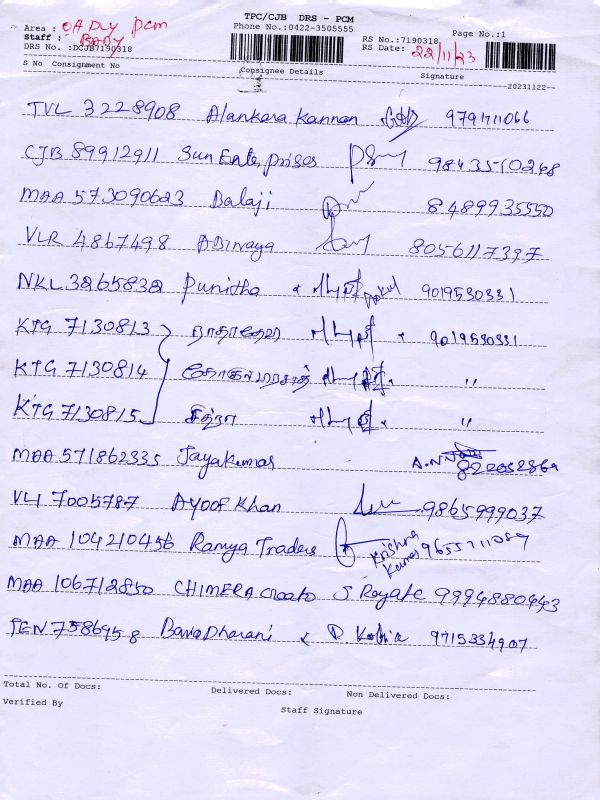 TPC/CJB DRS - PCM
Area : OA DLY PCM Phone No.:0422-3505555 Page No.:1
Staff : BABY RS No.:7190318
DRS No. :DCJB7190318 RS Date: 22/11/23
S No Consignment No Consignee Details Signature
20231122--
TVL 3228908 Alankara Kannan 9791711066
CJB 89912911 Sun Enterprises 9843510248
MAA 573090623 Balaji 8489935550
VLR 4867498 ABINAYA 8056117397
NKL 3265832 Punitha 9019530331
KTG 7130813 9019530331
KTG 7130814 "
KTG 7130815 சித்ரா "
MAA 571862335 Jayakumar
VLI 7005787 Ayoof Khan 9865999037
MAA 104210456 Ramya Traders Krishna Kumar 9655711089
MAA 106712850 CHIMERA 9994880443
TEN 7586958 BavaDharani 9715334907
Total No. Of Docs: Delivered Docs: Non Delivered Docs:
Verified By Staff Signature